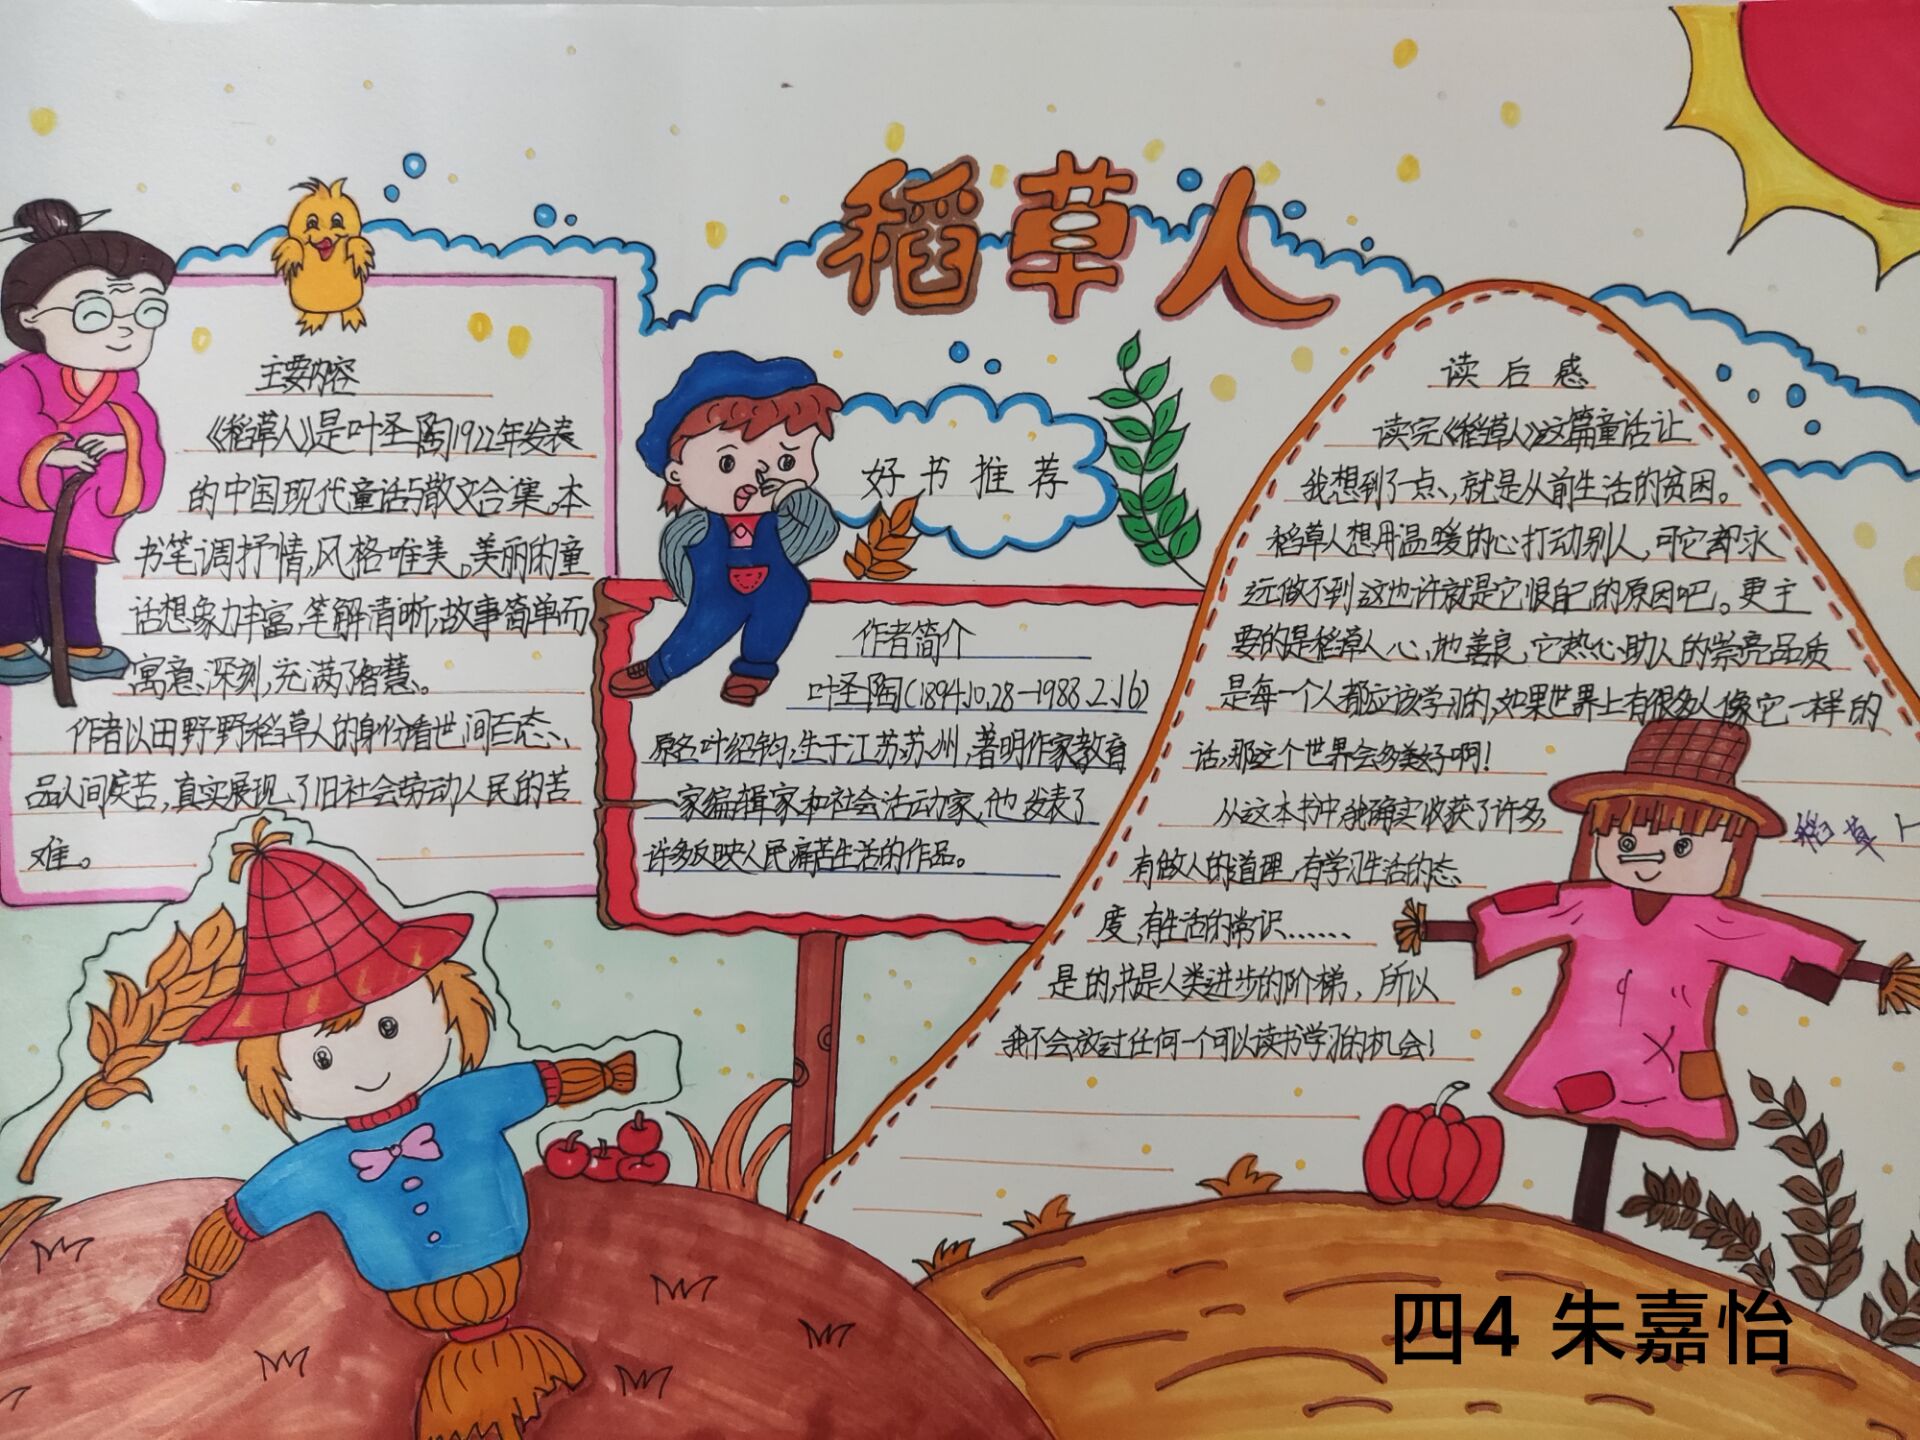 稻草人
主要内容
《稻草人》是叶圣陶1922年发表
的中国现代童话与散文合集。本
书笔调抒情,风格唯美。美丽的童
话想象力丰富,笔解清晰,故事简单而
寓意深刻,充满了智慧。
作者以田野野稻草人的身份看世间百态、
品人间疾苦,真实展现了旧社会劳动人民的苦
难。
好书推荐
作者简介
叶圣陶(1894.10.28-1988.2.16)
原名叶绍钧,生于江苏苏州,著明作家教育
家编辑家和社会活动家,他发表了
许多反映人民痛苦生活的作品。
读后感
读完《稻草人》这篇童话让
我想到了一点,就是从前生活的贫困。
稻草人想用温暖的心打动别人,可它却永
远做不到这也许就是它恨自己的原因吧。更主
要的是稻草人心地善良,它热心助人的崇亮品质
是每一个人都应该学习的,如果世界上有很多人像它一样的
话,那这个世界会多美好啊!
从这本书中我确实收获了许多,
有做人的道理,有学习生活的态
度,有生活的常识……
是的,书是人类进步的阶梯,所以
我不会放过任何一个可以读书学习的机会!
稻草人
四4 朱嘉怡